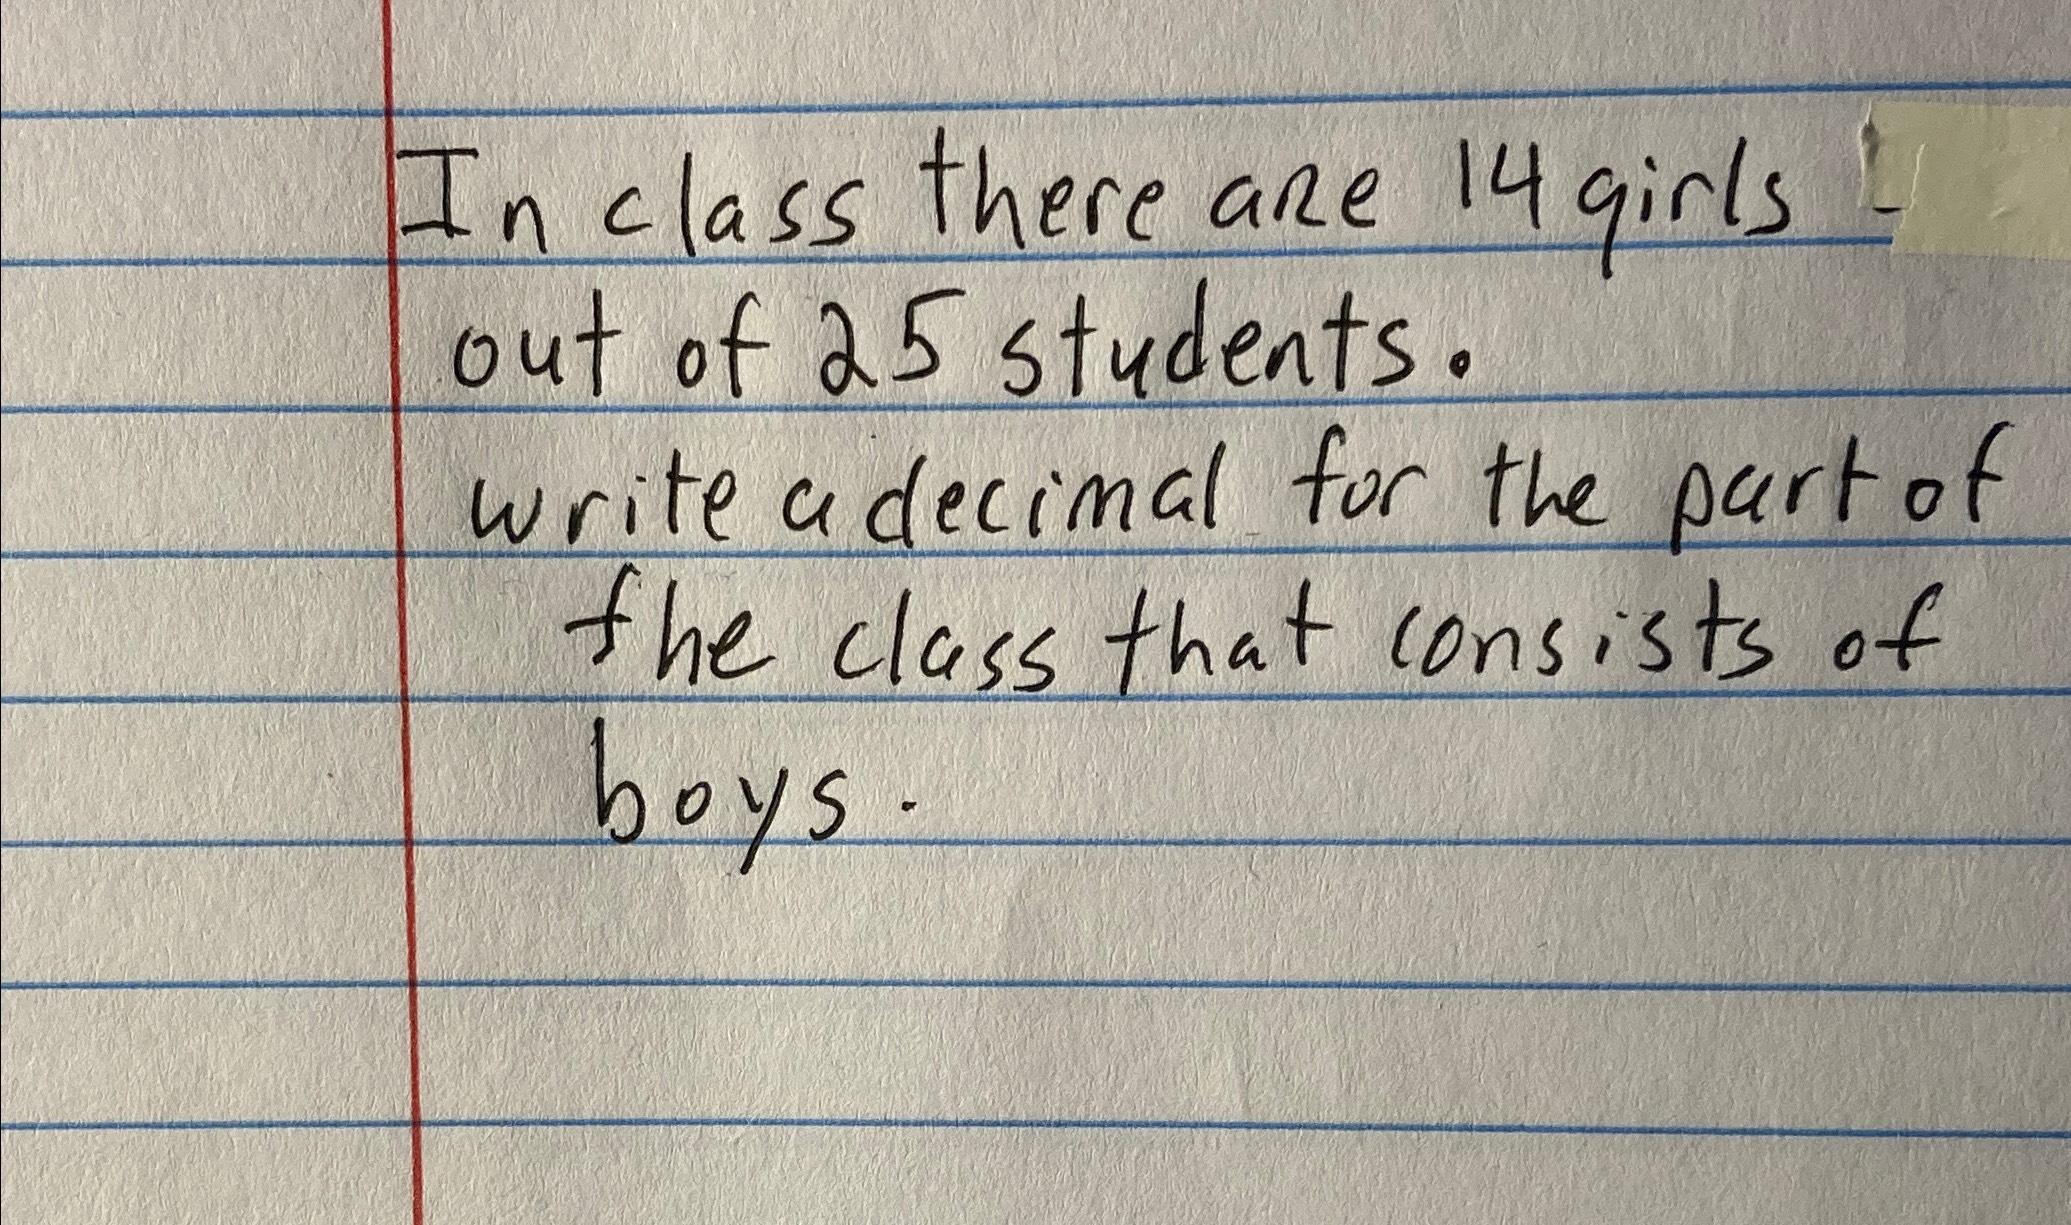 In class there are 14 girls -
out of 25 students.
write a decimal for the part of
the class that consists of
boys.